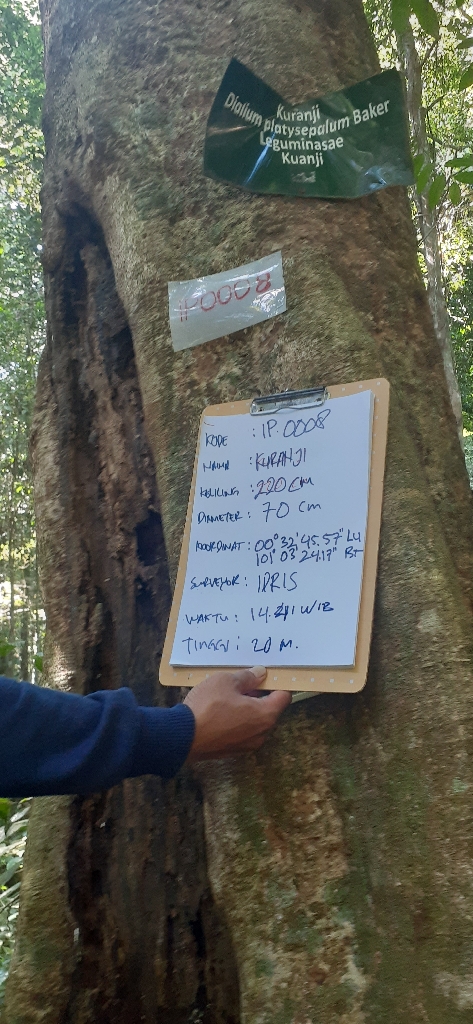 Kuranji
Dialium platysepalum Baker
Leguminasae
Kuanji
IP0008
KODE : IP.0008
NAMA : KURANJI
KELILING : 220 cm
DIAMETER : 70 cm
KOORDINAT : 00° 32' 45.57" LU
101° 03' 24.17" BT
SURVEYOR : IDRIS
WAKTU : 14.41 WIB
TINGGI : 20 M.